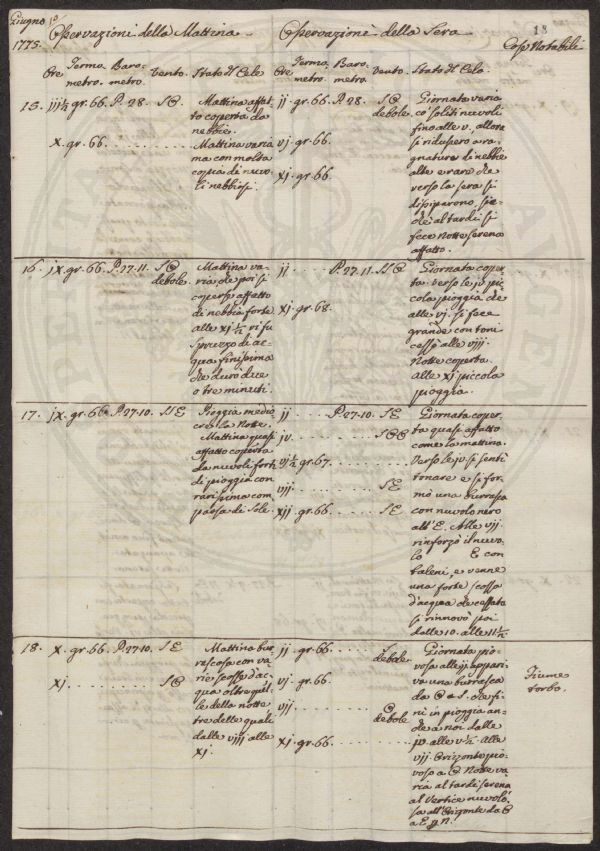 Giugno
1775.
Osservazioni della Mattina
Osservazioni della Sera
18
Cose Notabili
Ore Termo- Baro- Vento. Stato del Cielo
metro. metro.
Ore Termo- Baro- Vento. Stato del Cielo.
metro. metro.
15. gr. 66. P. 28. S O. Mattina affat-
to coperta da
nebbie.
x. gr. 66. Mattina varia
ma con molta
copia di nuvo-
li nebbiosi.
ij. gr. 66. P. 28. S O
debole.
vj. gr. 66.
xj. gr. 66.
Giornata varia
co' soliti nuvoli
fino alle v., allora
si ridussero a ra-
gnature di nebbie
alte e rare che
verso la sera si
dissiparono, sic-
chè al tardi si
fece notte serena
affatto.
16. jx. gr. 66. P. 27. 11. S O
debole.
Mattina va-
ria, che poi si
coperse affatto
di nebbia forte
alle xj ½ vi fu
spruzzo di ac-
qua finissima
che durò due
o tre minuti.
ij P. 27. 11. S O
xj. gr. 68.
Giornata coper-
ta. Verso le jv pic-
cola pioggia che
alle vj. si fece
grande con toni
cessò alle viij.
Notte coperta.
Alle xj piccola
pioggia.
17. jx. gr. 66. P. 27. 10. S E
Pioggia medio-
cre la Notte.
Mattina quasi
affatto coperta
da nuvoli forti
di pioggia con
rarissima com-
parsa di Sole.
ij P. 27. 10. S E
jv
vj ½ gr. 67.
vij. S E
xij. gr. 66. S E
Giornata coper-
ta quasi affatto
come la mattina.
Verso le jv si sentì
tonare e si for-
mò una burrasca
con nuvolo nero
all' E. Alle vij.
rinforzò il nuvo-
lo E con
baleni, e venne
una forte scossa
d'acqua che cessata
si rinnovò poi
dalle 10. alle 11 ½
18. x. gr. 66. P. 27. 10. S E
xj. S O
Mattina bur-
rascosa con va-
rie scosse d'ac-
qua oltre quel-
le della notte
tre delle quali
dalle viij alle
xj.
ij. gr. 66. S
debole.
vj. gr. 66.
vij O
debole
xj. gr. 66.
Giornata pio-
vosa alle ij appari-
va una burrasca
da O a S. che fi-
nì in pioggia an-
che a noi dalle
jv. alle v ½. Alle
vij Orizzonte pio-
voso a O. Notte va-
ria al tardi serena
al Vertice nuvolo-
sa all'Orizzonte da O
a E
Fiume
torbo.